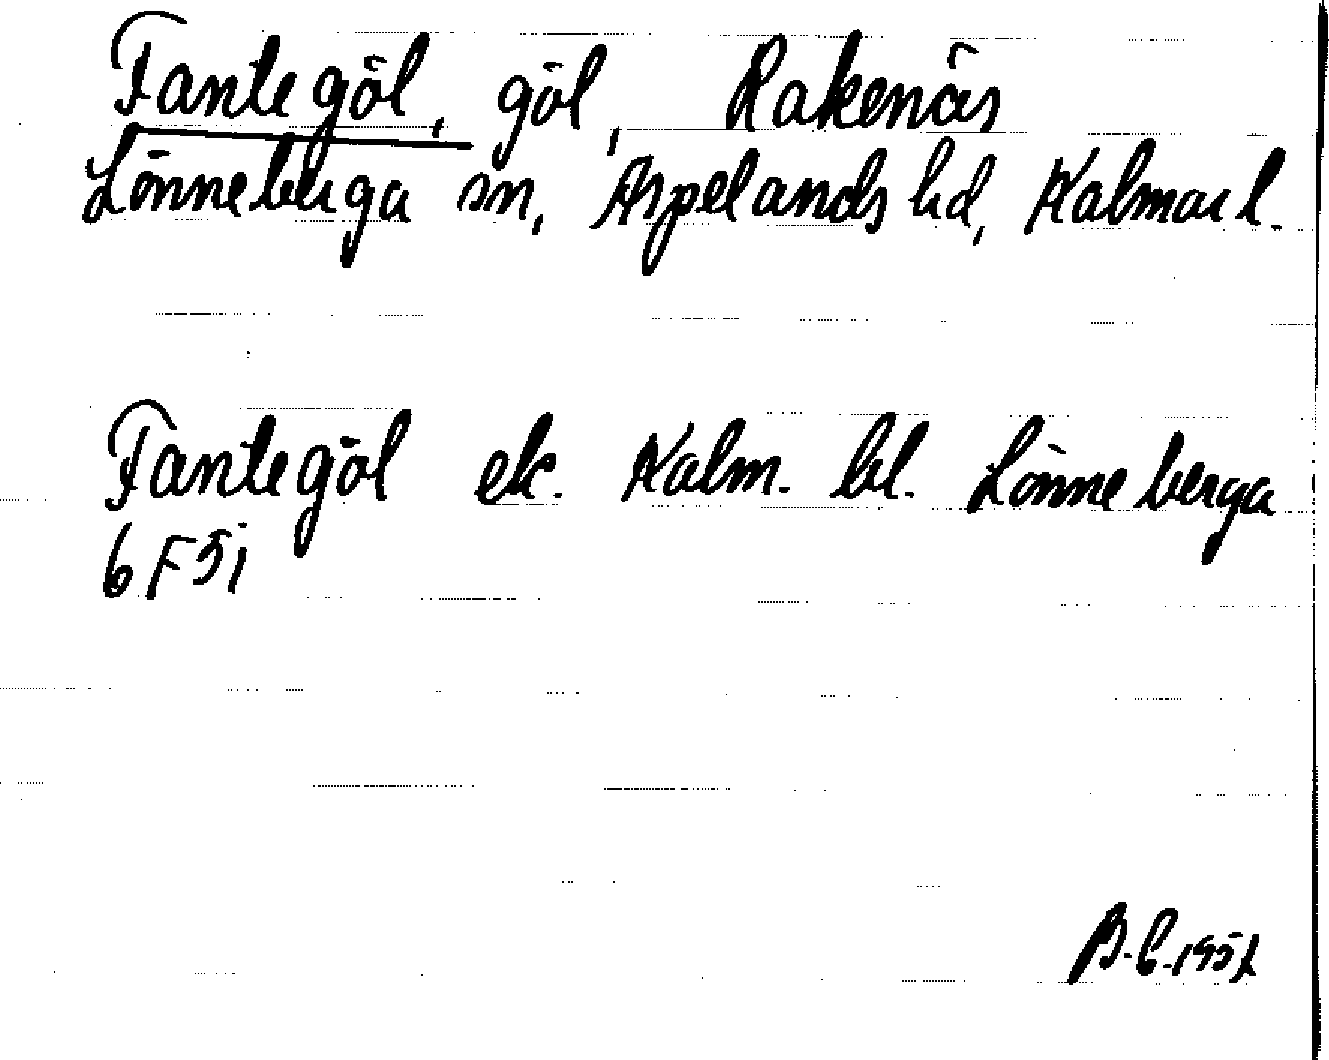 Fantegöl, göl, Rakenäs
Lönneberga sn, Aspelands hd, Kalmar l.
Fantegöl ek. Kalm. bl. Lönneberga
6F5i